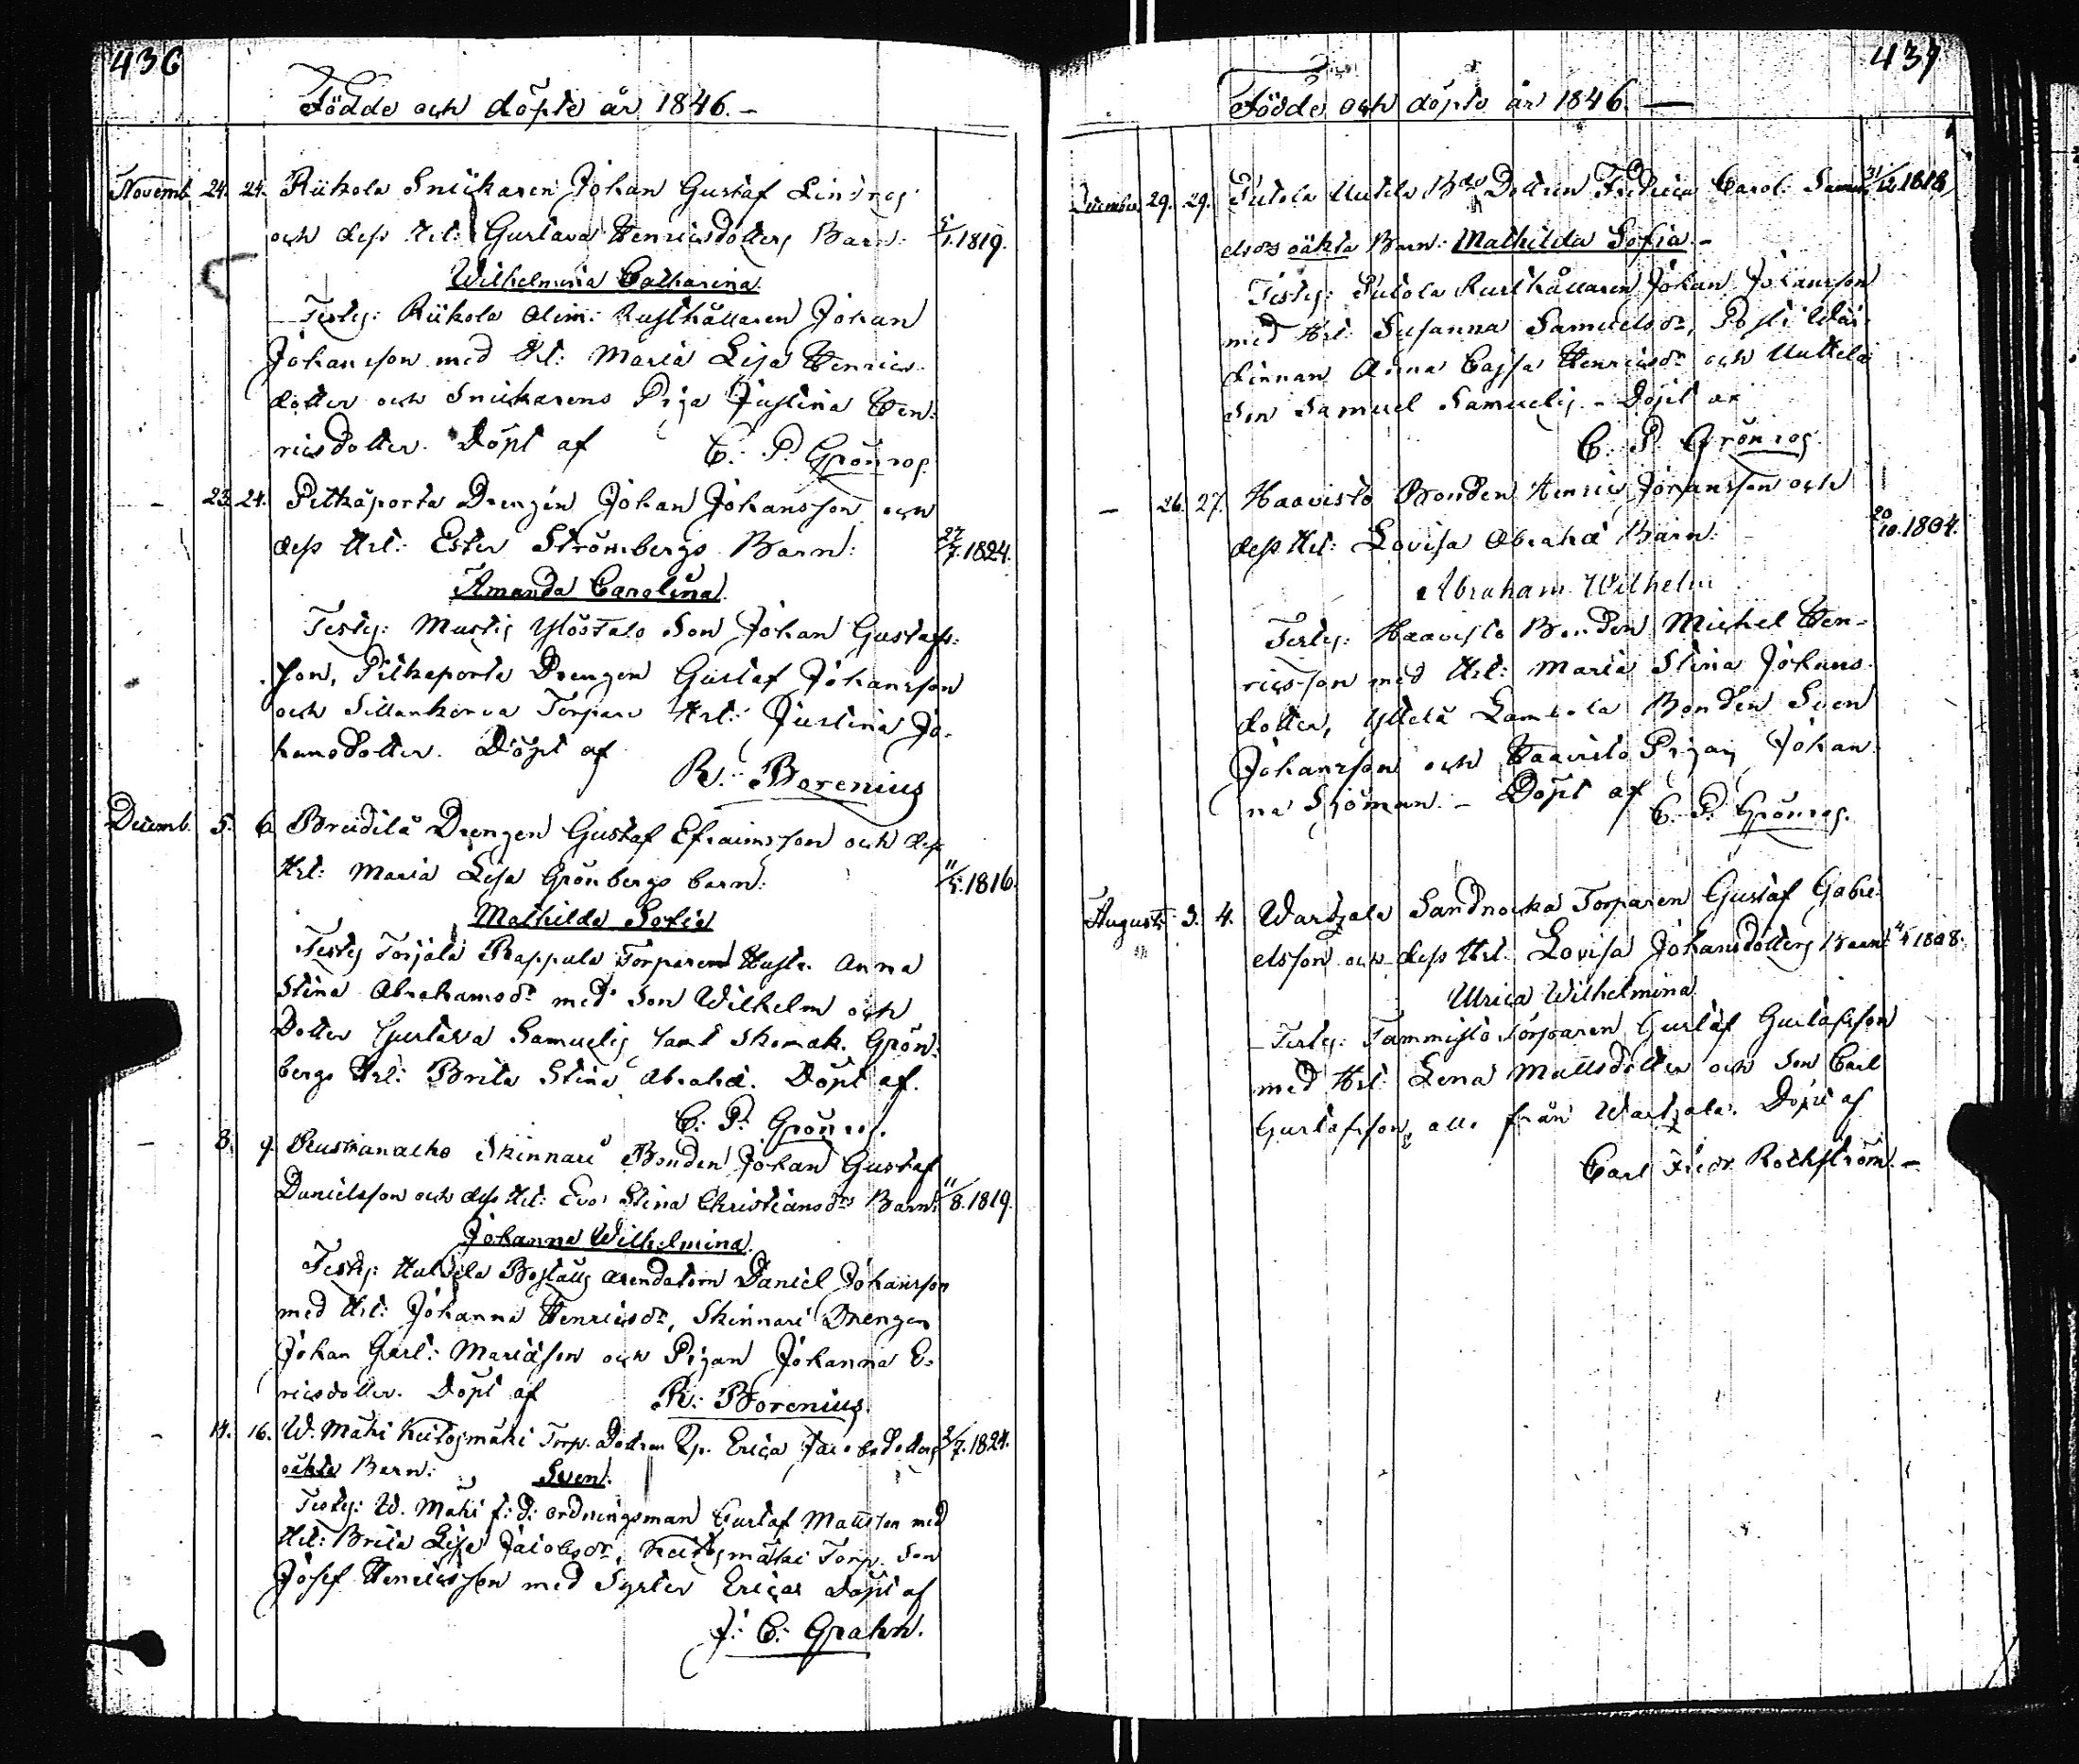 436
Födde och döpte år 1846.-
Novemb. 24. 24. Riikola Snickaren Johan Gustaf Lindros
och dess Hst: Gustava Henricsdotters Barn: 5/1.1819.
Wilhelmina Catharina.
Testes: Riikola Rusthållaren Johan
Johansson med Hst: Maria Lisa Henrics
dotter och Snickarens Piga Justina Hen:
ricsdotter. Döpt af C. P. Grönros.
- 23. 24. Pitkäporta Drengen Johan Johansson och
dess Hst: Ester Strömbergs Barn: 27/7.1824.
Amanda Carolina.
Testes: Ylöstalo Son Johan Gustafs:
son, Pitkeporta Drengen Gustaf Johansson
och Torpare Hst: Justina Jo-
hansdotter. Döpt af
R: Borenius
Decemb. 5. 6. Drengen Gustaf Efraimsson och dess
Hst: Maria Lisa Grönbergs barn: 11/5.1816.
Mathilda Sofia
Testes Rappula Torparens Hustr. Anna
Stina Abrahamsdr med Son Wilhelm och
Dotter Gustava Samuelis samt Skomak. Grön:
bergs Hst: Brita Stina Abrahă. Döpt af.
C. P. Grönros.
- 8. 9. Skinnari Bonden Johan Gustaf
Danielsson och dess Hst: Eva Stina Christiansdrs Barn: 11/8.1819.
Johanna Wilhelmina.
Testes: Boställs arendatorn Daniel Johansson
med Hst: Johanna Henricsdr, Skinnari Drengen
Johan Carl: Mariäson och Pigan Johanna E-
ricsdotter. Döpt af R: Borenius.
- 14. 16. W. Mäki Torp. Dottren Erica Jacobsdotters 2/7.1824.
oäkta Barn: Sven.
Testes: W. Mäki f: d: ordningsman Gustaf Mattsson med
Hst: Brita Lisa Jacobsdr, Torp. Son
Josef Henricsson med Syster Erica Döpt af
J: C: Grahn.
437
Födde och döpte år 1846. —
December. 29. 29. Dottren Fredrica Carol. Samu 31/12 1818
elsdrs oäkta Barn: Mathilda Sofia.-
Testes: Rusthållaren Johan Johansson
med Hst: Susanna Samuelsdr, Wär-
dinnan Anna Cajsa Henricsdr och
Son Samuel Samuelis.- Döpt af
C. P. Grönros
- 26. 27. Haavisto Bonden Henric Johansson och
dess Hst: Lovisa Abrahă Barn: 20/10.1804.
Abraham Wilhelm
Testes: Haavisto Bonden Michel Hen-
ricsson med Hst: Maria Stina Johans
dotter, Bonden Sven
Johansson och Haavisto Pigan Johan
na Sjöman.- Döpt af C. P. Grönros.
Augusti 3. 4. Torparen Gustaf Gabri-
elsson och dess Hst. Lovisa Johansdotters Barn: 1808.
Ulrica Wilhelmina
Testes: Tammisto torparen Gustaf Gustafsson
med Hst: Lena Mattsdotter och Son Carl
Gustafsson, alla från Döpt af
Carl Fredr. Rothström.-